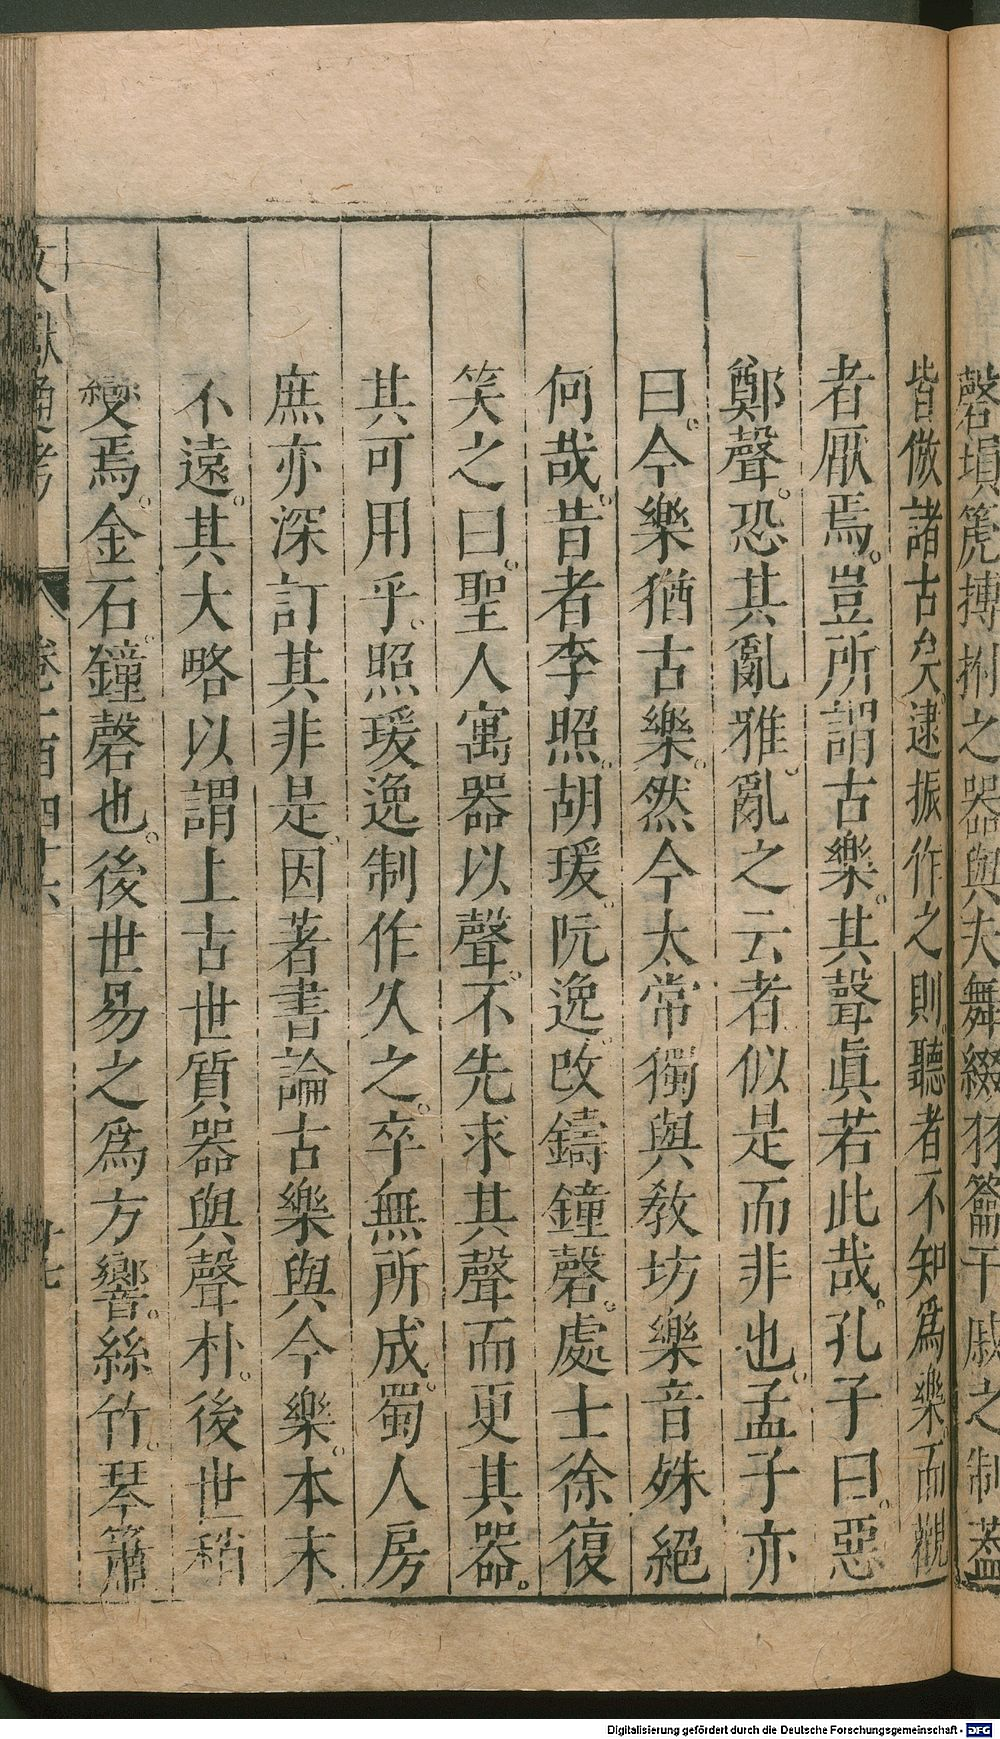 磬塤篪搏拊之器與夫舞綴羽籥干戚之制蓋
皆倣諸古矣逮振作之則聽者不知爲樂而觀
者厭焉。豈所謂古樂。其聲眞若此哉。孔子曰。惡
鄭聲。恐其亂雅。亂之云者似是而非也。孟子亦
曰。今樂猶古樂。然今太常獨與敎坊樂音殊絕
何哉。昔者李照。胡瑗。阮逸。改鑄鐘磬。處士徐復
笑之曰。聖人寓器以聲。不先求其聲而更其器。
其可用乎。照瑗逸制作久之。卒無所成。蜀人房
庶亦深訂其非是。因著書論古樂與今樂。本末
不遠。其大略以謂上古世質器與聲朴。後世稍
變焉。金石。鐘磬也。後世易之爲方響。絲竹。琴簫
文獻通考 卷一百四十六 廿七
Digitalisierung gefördert durch die Deutsche Forschungsgemeinschaft - DFG